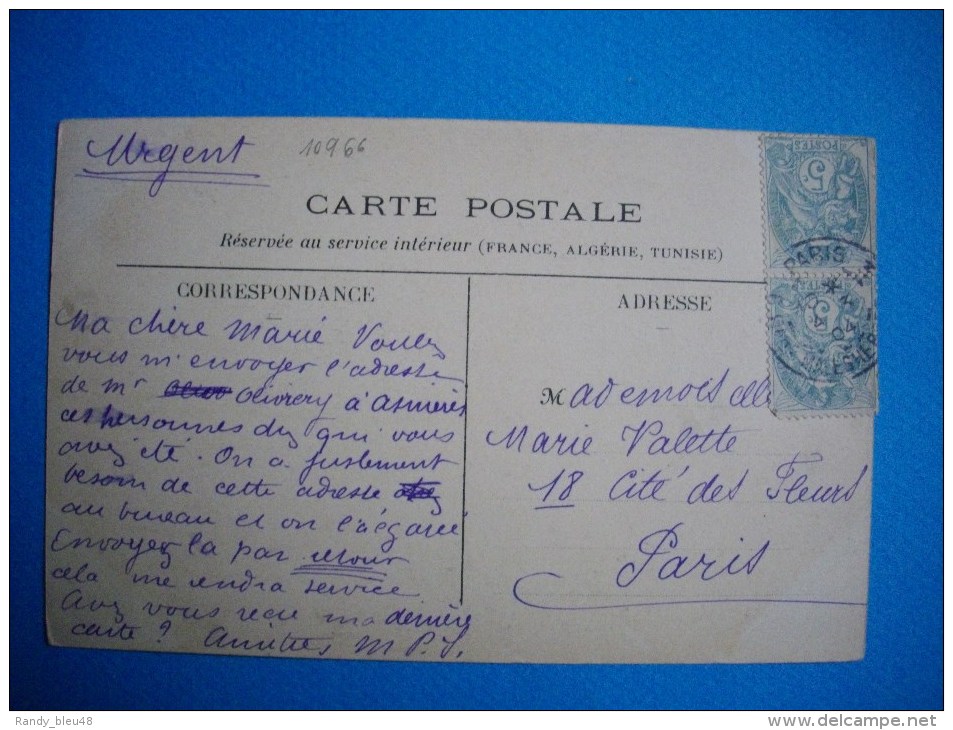 Urgent
10966
CARTE POSTALE
Réservée au service intérieur (FRANCE, ALGÉRIE, TUNISIE)
CORRESPONDANCE
Ma chère Marie Voulez
vous m'envoyer l'adresse
de Mr Olivrery à Asnières
ces personnes dz qui vous
avez été. On a justement
besoin de cette adresse
au bureau et on l'a égaré
Envoyez la par retour
cela me rendra service
Avez vous reçu ma dernière
carte? Amitiés M P. S.
ADRESSE
Mademoiselle
Marie Valette
18 Cité des Fleurs
Paris
POSTES
5c
PARIS
5c
Randy_bleu48
http://www.delcampe.net